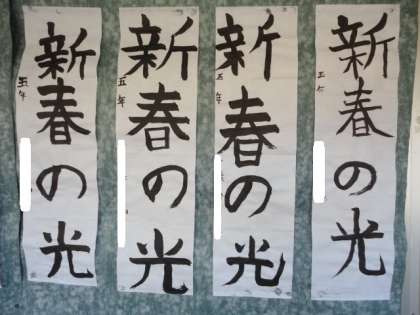 新春の光
五年
新春の光
五年
新春の光
五年
新春の光
五年